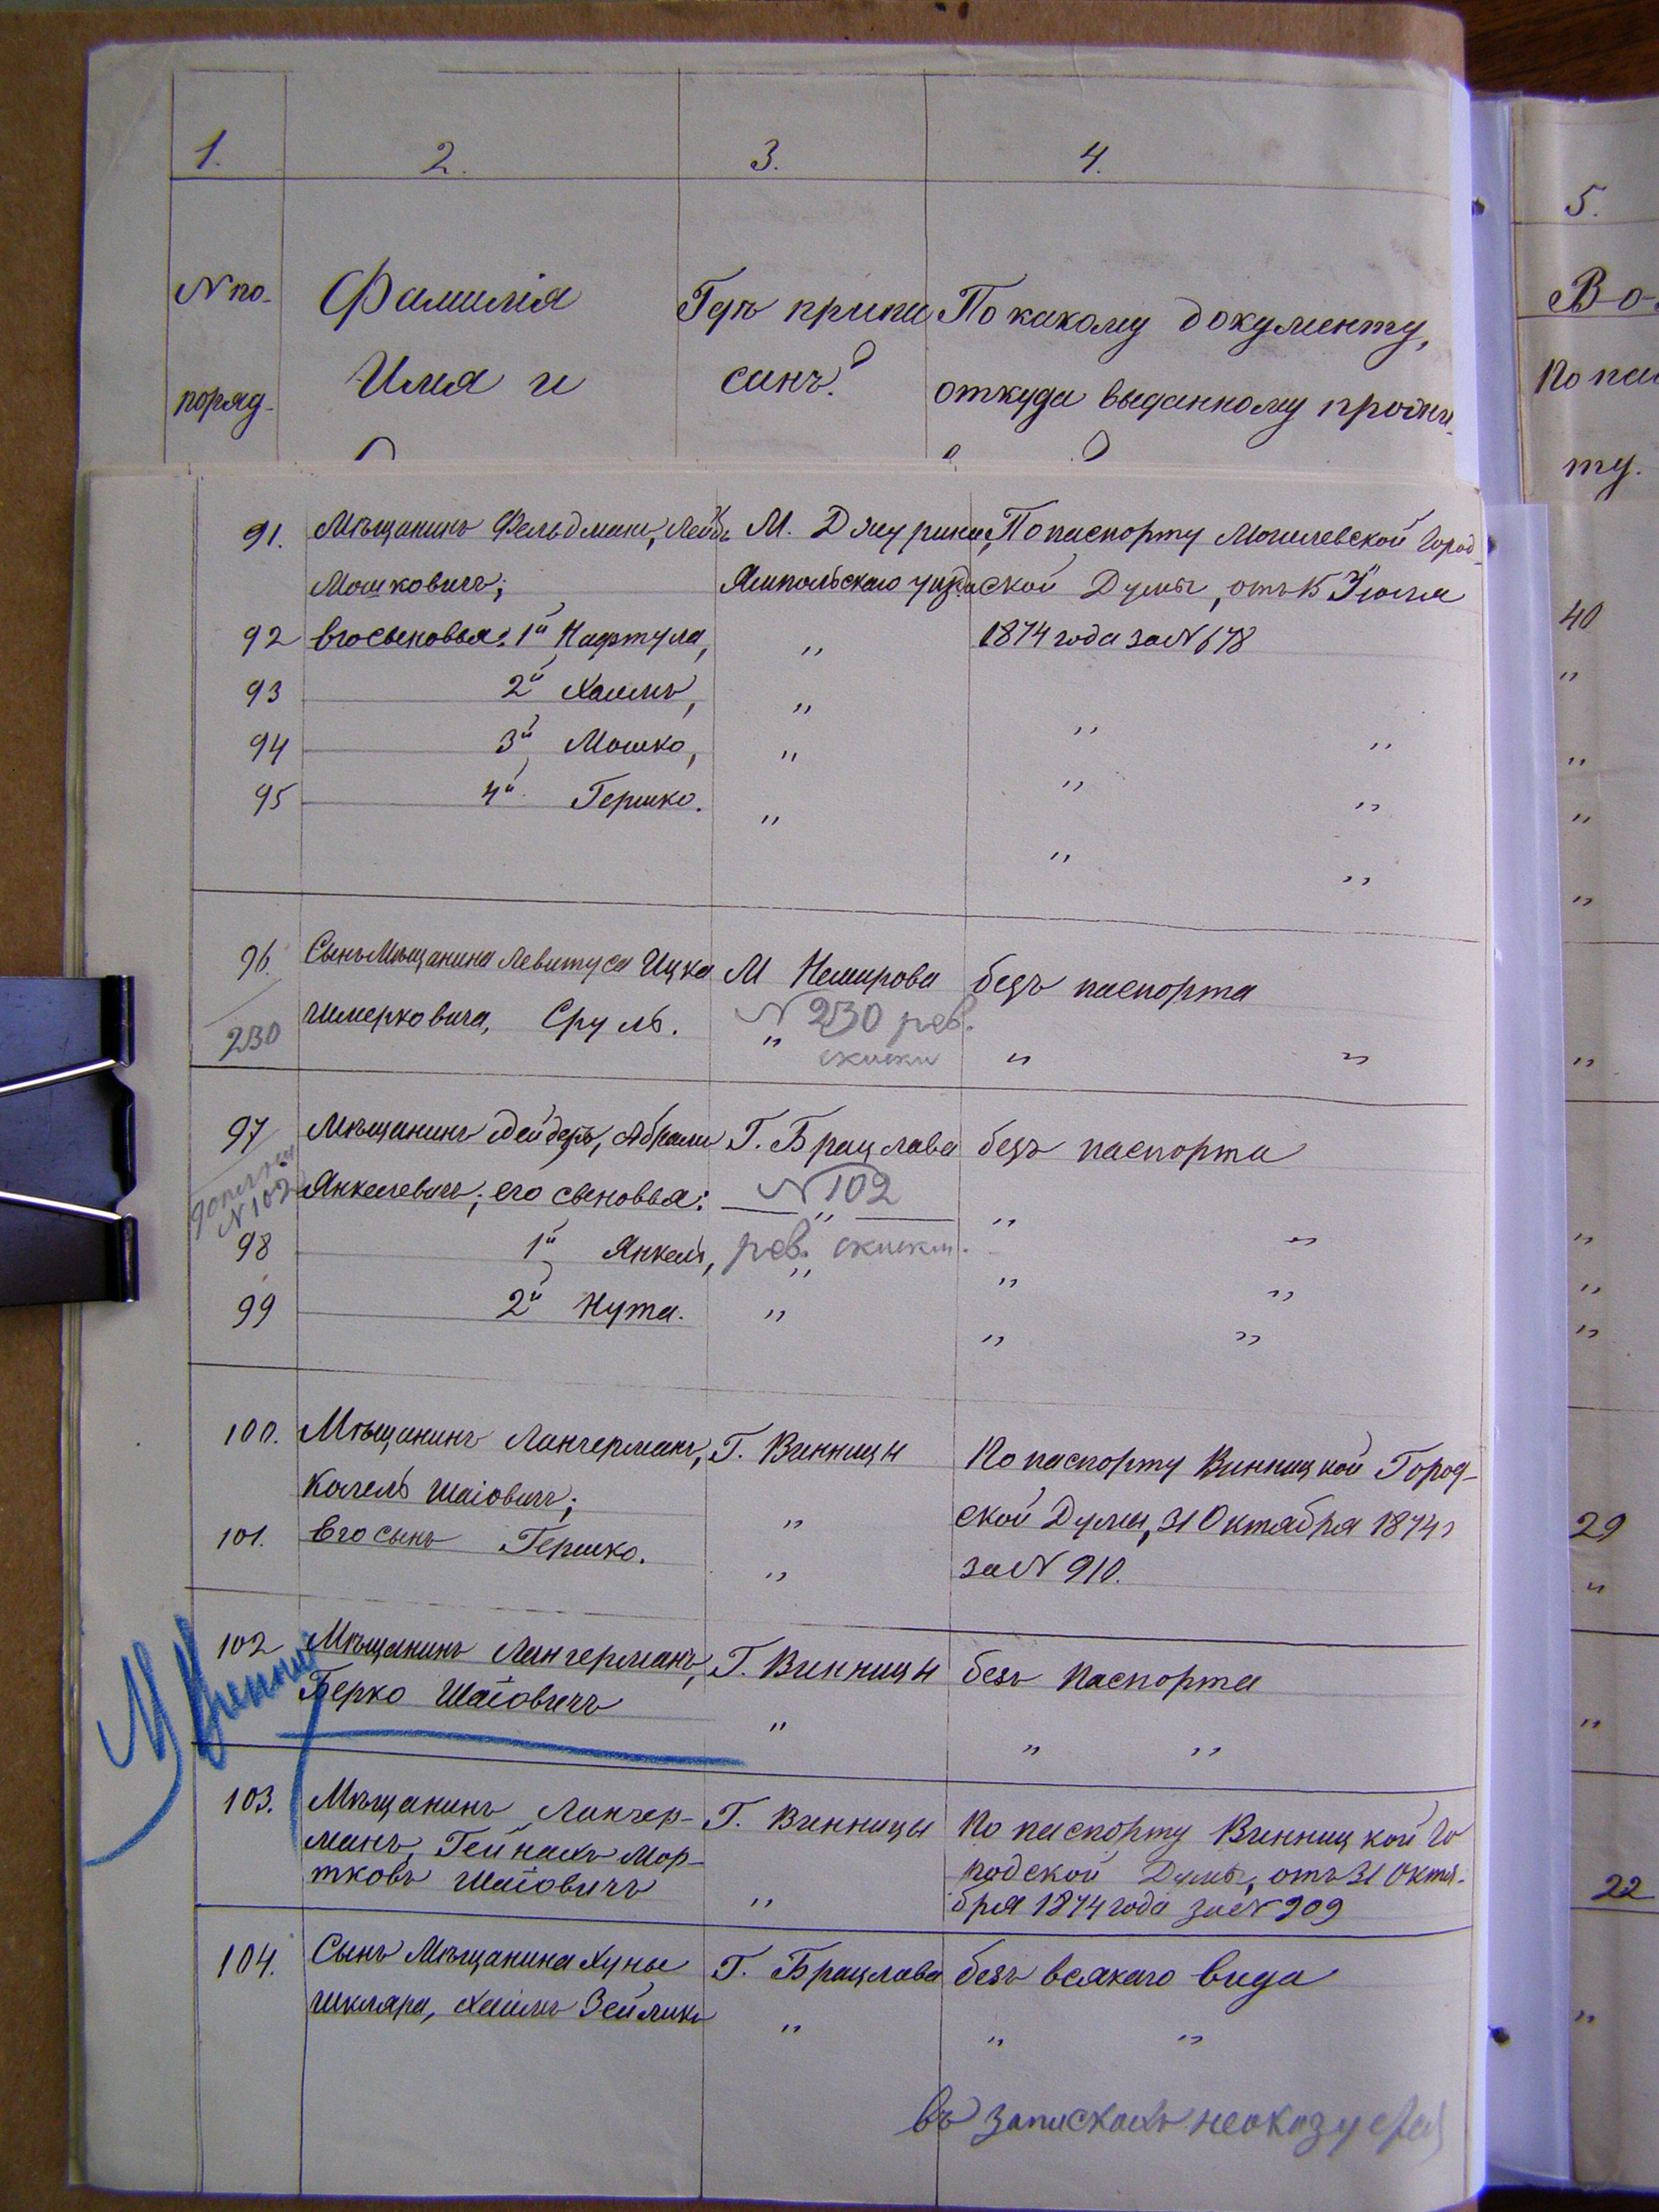 1. 2. 3. 4. 5.
№ по- Фамилія Гдѣ припи По какому документу, Во-
поряд- Имя и санъ? откуда выданному прожи- По пас
ту.
91. Мѣщанинъ Фельдманъ, Лейбъ М. Джурина, По паспорту Могилевской Город-
Мошковичъ; Ямпольскаго уѣзда ской Думы, отъ 15 Іюля 40
92 Его сыновья: 1й Нафтула, „ 1874 года за № 678 „
93 2й Хаимъ, „ „ „ „
94 3й Мошко, „ „ „ „
95 4й Гершко. „ „ „ „
96. Сынъ Мѣщанина Левитуса Ицка М Немирова безъ паспорта
230 Шмерковича, Сруль. № 230 рев.
„ сказки „ „ „
97 Мѣщанинъ Абрамъ Г. Брацлава безъ паспорта
№ 102 Янкелевичъ; его сыновья: № 102
— „ — „ „ „
98 1й Янкель, рев. сказки. „ „ „ „
99 2й Нута. „ „ „ „
100. Мѣщанинъ Лангерманъ, Г. Винницы По паспорту Винницкой Город-
Копель Шаіовичъ; „ ской Думы, 31 Октября 1874 г 29
101. Его сынъ Гершко. „ за № 910. „
102 Мѣщанинъ Лангерманъ, Г. Винницы безъ паспорта
Берко Шаіовичъ „ „ „ „
103. Мѣщанинъ Лангер- Г. Винницы По паспорту Винницкой Го
манъ, Гейнахъ Мор- родской Думы, отъ 31 Октя-
тковъ Шаіовичъ „ бря 1874 года за № 909 22
104. Сынъ Мѣщанина Хуны Г. Брацлава безъ всякаго вида
Шкляра, Хаимъ Зейликъ „ „ „ „
въ запискахъ неоказуется